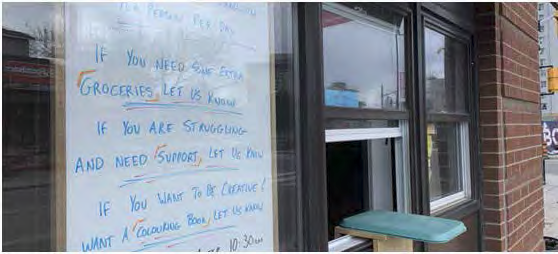 PER PERSON PER DAY
IF YOU NEED SOME EXTRA
GROCERIES, LET US KNOW
IF YOU ARE STRUGGLING
AND NEED SUPPORT, LET US KNOW
IF YOU WANT TO BE CREATIVE /
WANT A COLOURING BOOK, LET US KNOW
10:30am